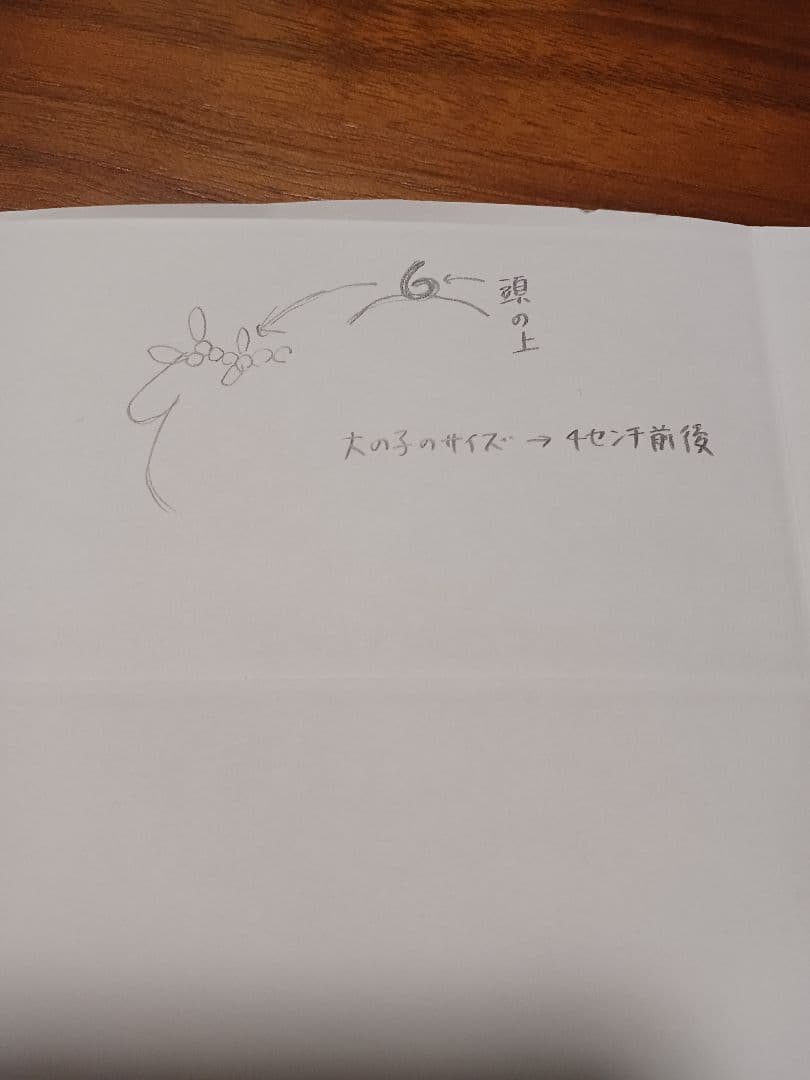 6 ←
頭の上
大の子のサイズ → 4センチ前後